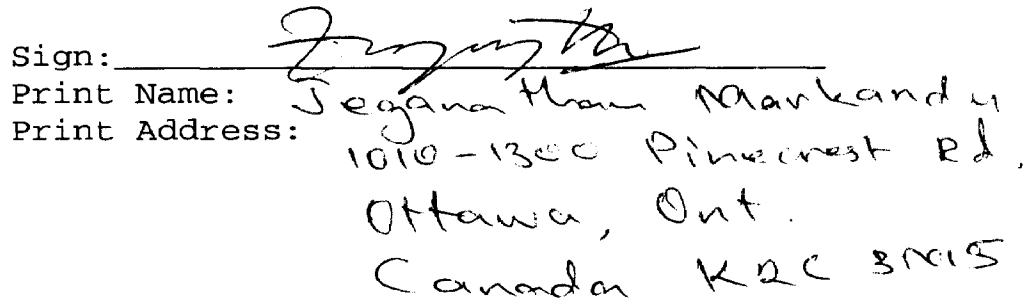 Sign:
Print Name: Jeganathan Markandu
Print Address:
1010-1300 Pinecrest Rd,
Ottawa, Ont.
Canada K2C